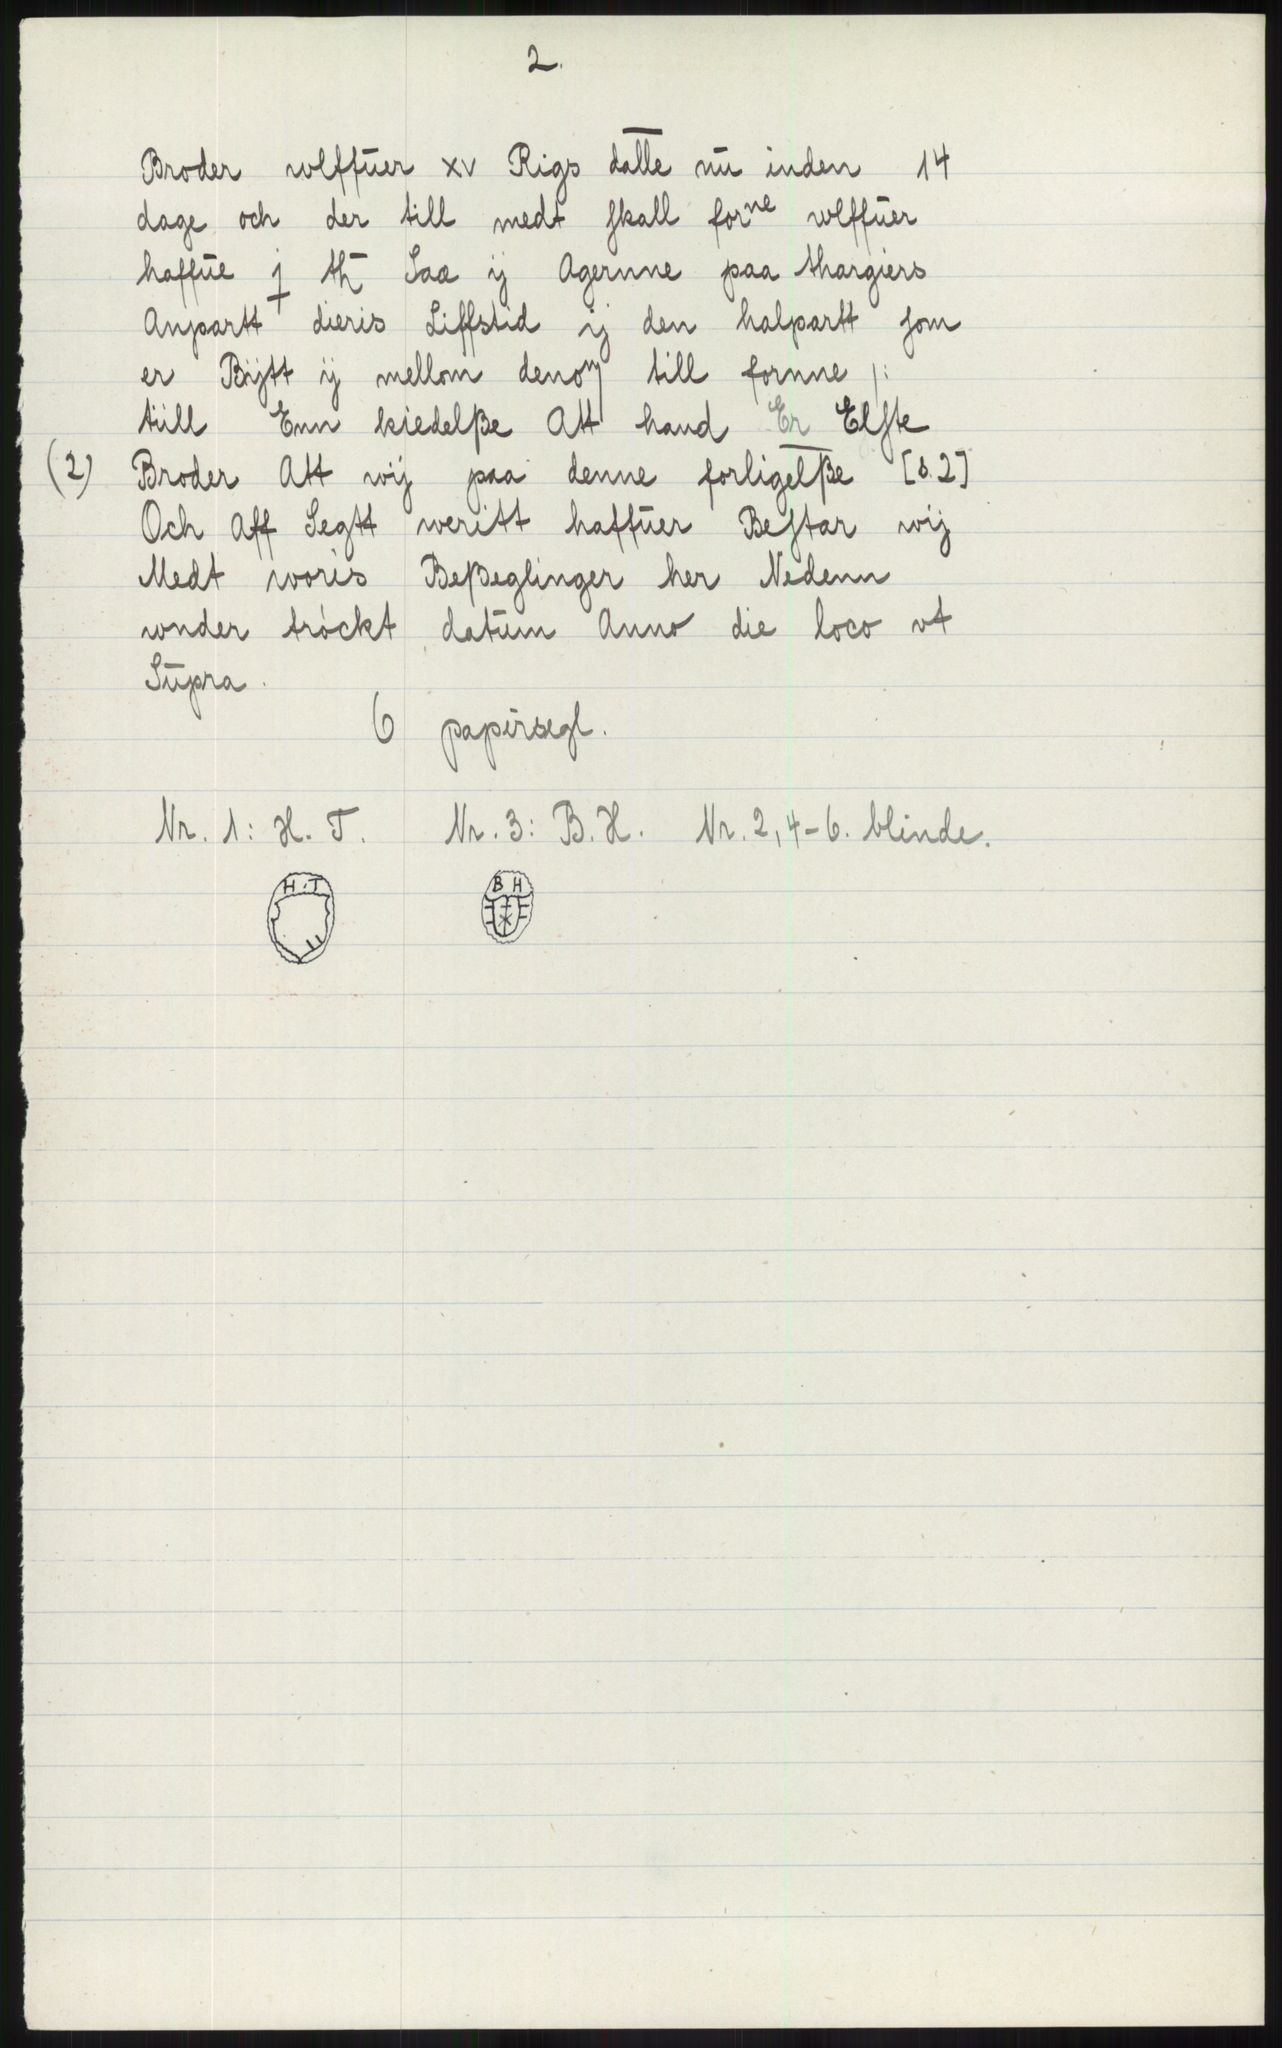 2.
Broder wlffuer xv Rigs dalle nu inden 14
dage och der till medt skall forne wlffuer
haffue j tħ Saa ij Agernne paa thargiers
Anpartt dieris Liffstid ij den halpartt som
er Bÿtt ij mellom denom till fornne /:
till Enn kiedelße Att hand Er Elste
(2) Broder Att wij paa denne forligelße [s. 2]
Och Aff Segtt weritt haffuer Bestar wij
Medt woris Beßeglinger her Nedenn
wnder tröckt datum Anno die loco vt
Supra.
6 papirsegl.
Nr. 1: H. T. Nr. 3: B. H. Nr. 2, 4-6. blinde.
H.T B H